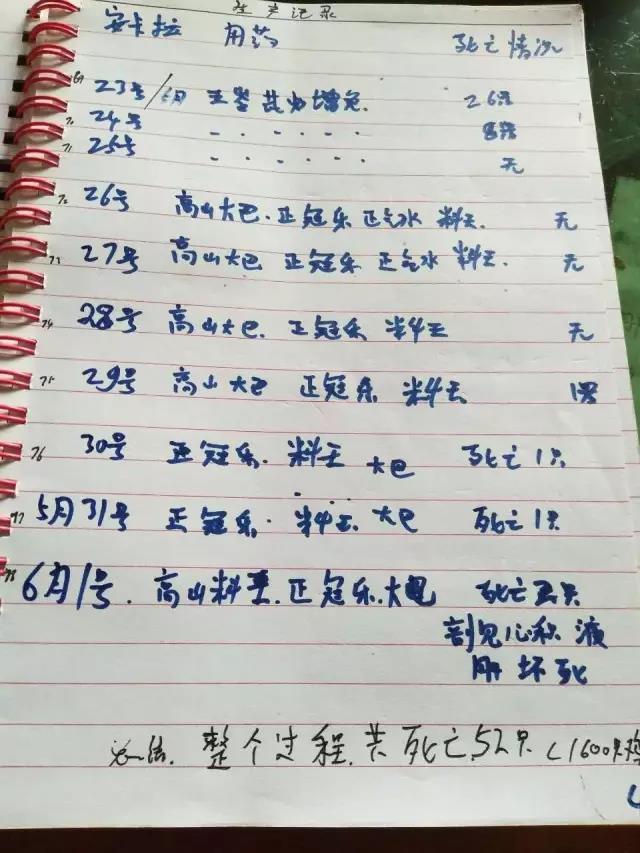 生产记录
安卡拉 用药 死亡情况
69 23号/6月 玉 芪 增免. 26只
24号 · · · · · · 8只
71 25号 · · · · · · 无
72 26号 高山大巴. 正冠乐 正气水 料王. 无
73 27号 高山大巴 正冠乐 正气水 料王. 无
74 28号 高山大巴. 正冠乐 料王 无
75 29号 高山大巴 正冠乐 料王 1只
76 30号 正冠乐. 料王 大巴 死亡1只
77 5月31号 正冠乐. 料王. 大巴 死亡1只
78 6月1号. 高山料王. 正冠乐. 大巴 死亡 只
剖见心积液
肝坏死
总结. 整个过程. 共死亡52只 (1600只鸡